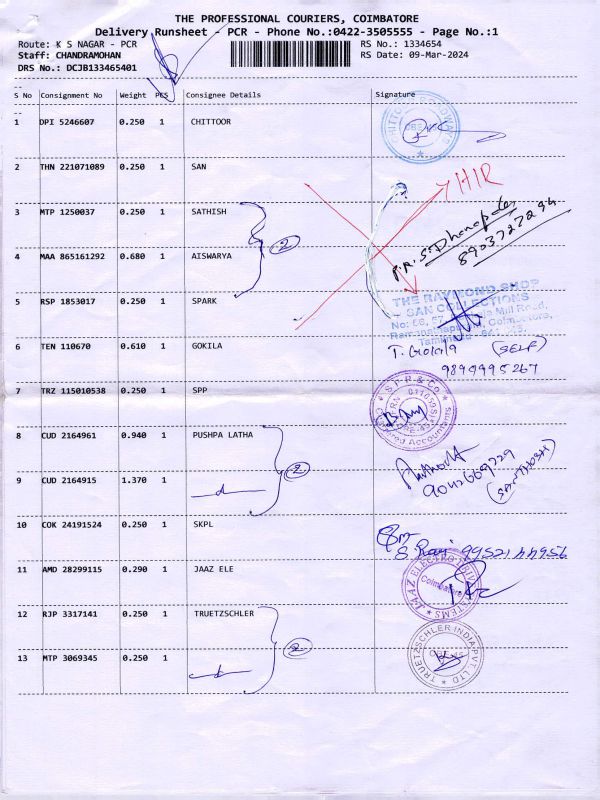 THE PROFESSIONAL COURIERS, COIMBATORE
Delivery Runsheet - PCR - Phone No.:0422-3505555 - Page No.:1
Route: K S NAGAR - PCR
RS No.: 1334654
Staff: CHANDRAMOHAN
RS Date: 09-Mar-2024
DRS No.: DCJB133465401
S No Consignment No Weight PCS Consignee Details Signature
1 DPI 5246607 0.250 1 CHITTOOR
2 THN 221071089 0.250 1 SAN
HIR
3 MTP 1250037 0.250 1 SATHISH
2
4 MAA 865161292 0.680 1 AISWARYA
8903727294
5 RSP 1853017 0.250 1 SPARK
THE RAYMOND SHOP
SAN COLLECTIONS
6 TEN 110670 0.610 1 GOKILA
T. Gokila (SELF)
7 TRZ 115010538 0.250 1 SPP
S.P.P & Co
8 CUD 2164961 0.940 1 PUSHPA LATHA
2
9 CUD 2164915 1.370 1
(SANTHOSH)
10 COK 24191524 0.250 1 SKPL
S Ravi 9952144956
11 AMD 28299115 0.290 1 JAAZ ELE
Coimbatore
12 RJP 3317141 0.250 1 TRUETZSCHLER
2
13 MTP 3069345 0.250 1
TRUETZSCHLER INDIA PVT LTD